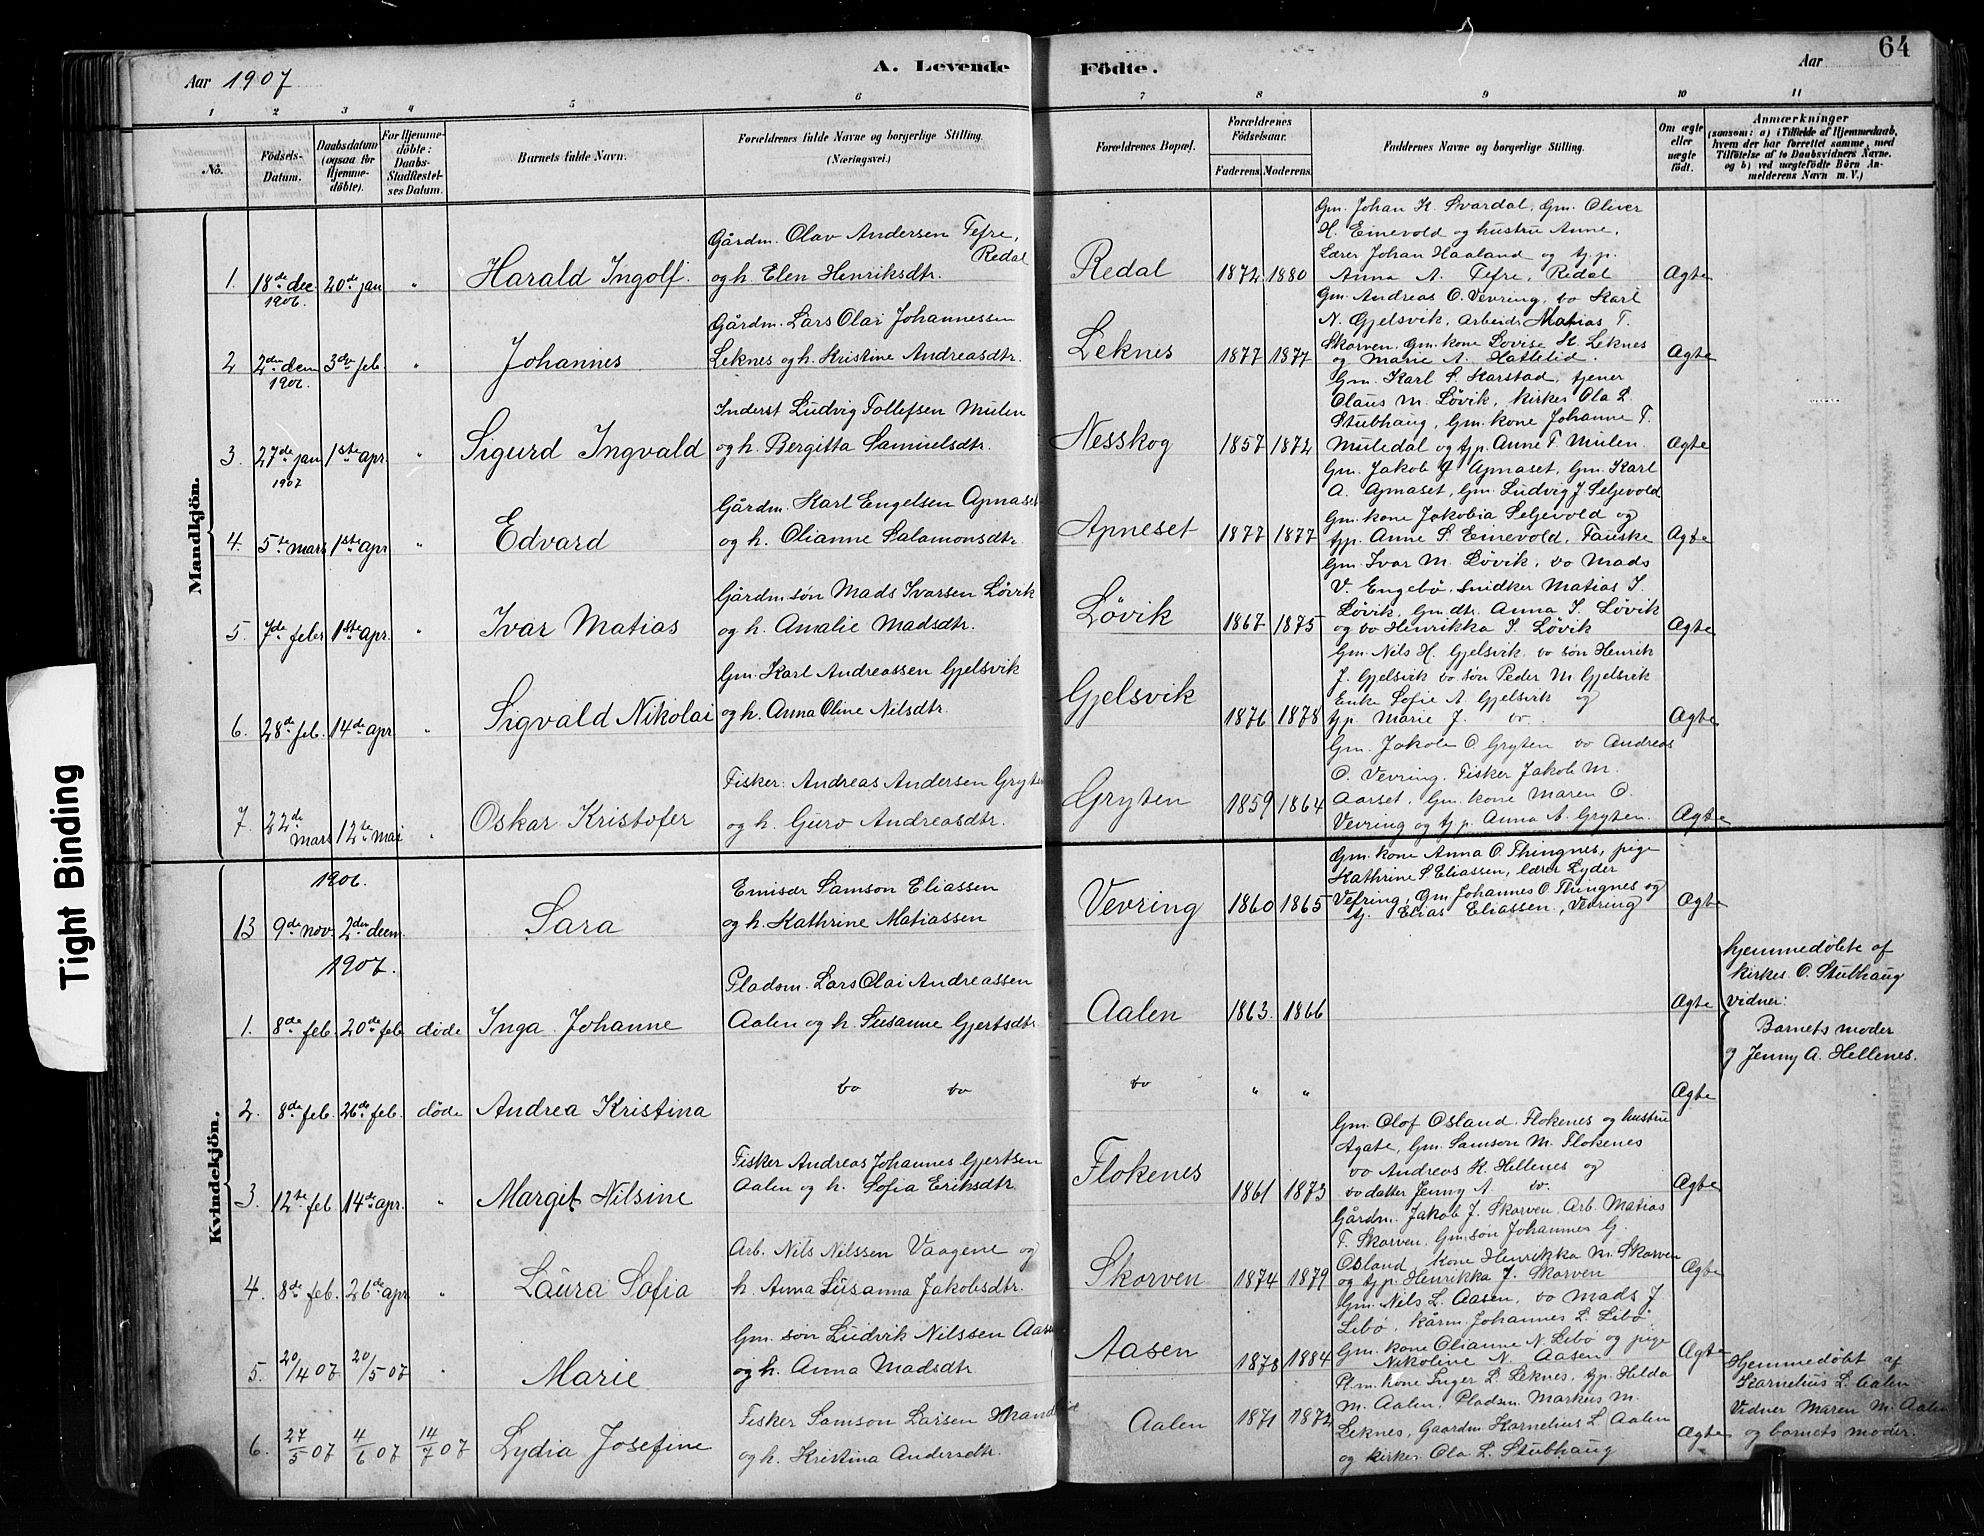 Aar 1907
A. Levende Födte.
Aar
64
1 2 3 4 5 6 7 8 9 10 11
No.
Födsels-Datum.
Daabsdatum (ogsaa for Hjemmedöbte).
For Hjemmedöbte: Daabs-Stadfæstelses Datum.
Barnets fulde Navn.
Forældrenes fulde Navne og borgerlige Stilling. (Næringsvei.)
Forældrenes Bopæl.
Forældrenes Födselsaar.
Faderens. Moderens.
Faddernes Navne og borgerlige Stilling.
Om ægte eller uægte födt.
Anmærkninger
(saasom: a) i Tilfælde af Hjemmedaab, hvem der har forrettet samme, med Tilföielse af to Daabsvidners Navne, og b) ved uægtefödte Börn Anmelderens Navn m. V.)
Mandkjön.
1. 18de dec 1906 20de jan " Harald Ingolf.
Gårdm. Olav Andersen Tefre, Redal
og h. Elen Henriksdtr.
Redal 1872 1880
Gm. Johan K. Svardal, Gm. Oliver
H. Einevold og hustru Anne,
Lærer Johan Haaland og tjp.
Anna A. Tefre, Redal
Ægte
2 2den dem 1906. 3de feb " Johannes
Gårdm. Lars Olai Johannessen
Leknes og h. Kristine Andreasdtr.
Leknes 1877 1877
Gm. Andreas O. Vevring, do Karl
N. Gjelsvik, Arbeidr Matias T.
Skorven. Gm. kone Lovise H. Leknes
og Marie A. Hattelid.
Ægte
3. 27de jan 1907 1ste apr. " Sigurd Ingvald
Inderst Ludvig Tollefsen Mulen
og h. Bergitta Samuelsdtr.
Nesskog 1857 1872
Gm. Karl S. Karstad, tjener
Claus M. Løvik, kirkes Ola L.
Stubhaug, Gm. kone Johanne T.
Muledal og tjp. Anne T. Mulen.
Ægte
4. 5te mars 1ste apr " Edvard
Gårdm. Karl Engelsen Apnaset
og h. Olianne Salamonsdtr.
Apneset 1877 1877
Gm. Jakob J Apnaset, Gm. Karl
A. Apnaset, Gm. Ludvig J. Seljevold
Gm. kone Jakobia Seljevold og
tjp. Anne S. Einevold, Fauske
Ægte
5. 7de febr 1ste apr. " Ivar Matias
Gårdm. søn Mads Ivarsen Løvik
og h. Amalie Madsdtr.
Løvik 1867 1875
Gm. Ivar M. Løvik, do Mads
V. Engebø, Snidker Matias I.
Løvik, Gm. dtr. Anna I. Løvik
og do Henrikka I. Løvik
Ægte
6. 28de feb. 14de apr " Sigvald Nikolai
Gm. Karl Andreassen Gjelsvik
og h. Anna Oline Nilsdtr.
Gjelsvik 1876 1878
Gm. Nils H. Gjelsvik do søn Henrik
J. Gjelsvik do søn Peder M Gjelsvik
Enke Sofie A Gjelsvik og
tjp. Marie J. do.
Ægte
7. 22de mars 12te mai " Oskar Kristofer
Fisker: Andreas Andersen Gryten
og h. Guro Andreasdtr.
Gryten 1859 1864
Gm. Jakob O Gryten do Andreas
O. Vevring. Fisker Jakob M.
Aarset, Gm. kone Maren O.
Vevring og tjp. Anna A. Gryten.
Ægte
Kvindekjön.
1906.
13 9de nov. 2den decm. Sara
Emisær Samson Eliassen
og h. Kathrine Matiassen
Vevring 1860 1865
Gm. kone Anna O. Thingnes, pige
Kathrine S Eliassen, lærer Lyder
Vefring, Gm Johannes O Thingnes og
tj. Elias Eliassen, Vevring
Ægte
1907.
1. 8de feb 20de feb døde Inga Johanne
Pladsm. Lars Olai Andreassen
Aalen og h. Susanne Gjertsdtr
Aalen 1863. 1866
Ægte
hjemmedøbte af
kirkes. O. Stubhaug
vidner:
Barnets moder
og Jenny A. Hellenes.
2. 8de feb. 26de feb. døde Andrea Kristina
do do do " "
Ægte
3. 12te feb 14de apr. " Margit Nilsine
Fisker Andreas Johannes Gjertsen
Aalen og h. Sofia Eriksdtr.
Flokenes 1861 1873
Gm. Olof Osland, Flokenes og hustru
Agate, Gm. Samson M. Flokenes
do Andreas K. Hellenes og
do datter Jenny A do.
Ægte
4. 8de feb. 26de apr " Laura Sofia
Arb. Nils Nilssen Vaagene og
h. Anna Susanna Jakobsdtr.
Skorven 1874 1879
Gårdm. Jakob J. Skorven. Arb. Matias
T. Skorven, Gm. søn Johannes G.
Osland, kone Henrikka M. Skorven
og tjp. Henrikka J. Skorven
Ægte
5. 20/4 07 20/5 07 " Marie
Gm. søn Ludvik Nilssen Aasen
og h. Anna Madsdtr
Aasen 1878 1884
Gm. Nils L. Aasen, do Mads J
Lebø, Kårm. Johannes L. Lebø,
Gm. kone Olianne N. Lebø og pige
Nikoline N. Aasen
Ægte
6. 27/5 07 4/6 07 14/7 07 Lydia Josefine
Fisker Samson Larsen
og h. Kristina Andersdtr.
Aalen 1871 1872
Pl.m. kone Inger L. Leknes, tjp. Helda
M. Aalen, Pladsm. Markus M.
Leknes, Gaardm Karnelius L Aalen
og kirkes Ola L. Stubhaug
Ægte
Hjemmedøbt af
Karnelius L. Aalen
Vidner Maren M. Aalen
og barnets moder.
Tight Binding